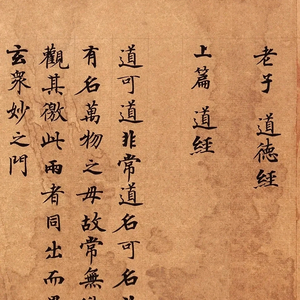 老子 道德經
上篇 道經
道可道非常道名可名
有名萬物之母故常無
觀其徼此兩者同出而
玄衆妙之門